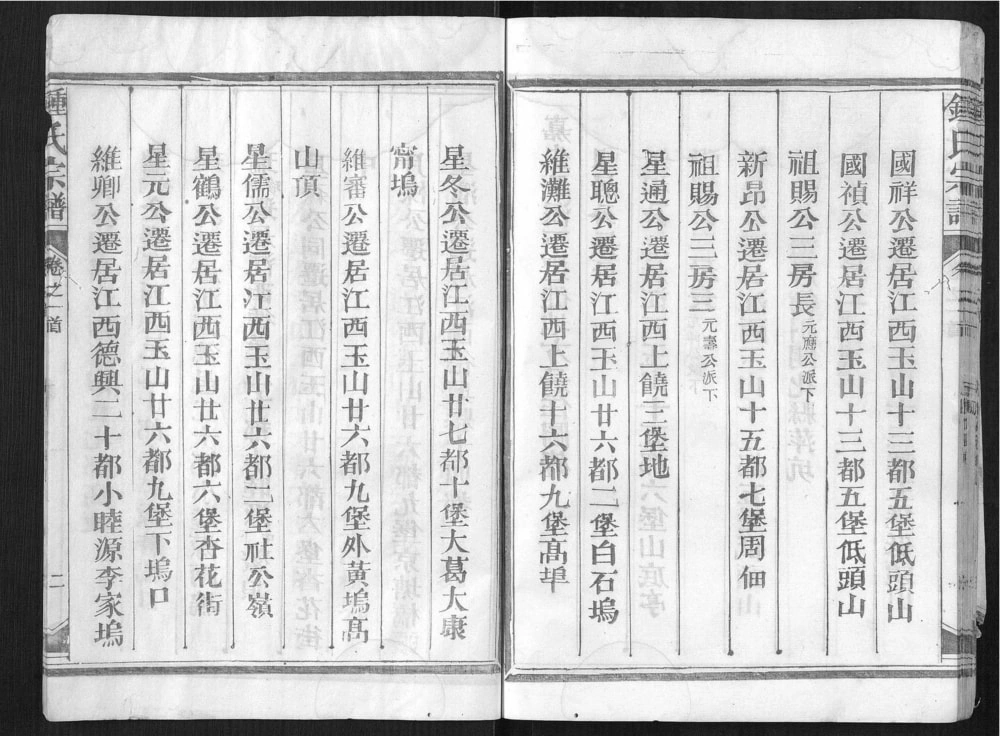 國祥公遷居江西玉山十三都五堡低頭山
國禎公遷居江西玉山十三都五堡低頭山
祖賜公三房長元廌公派下
新昂公遷居江西玉山十五都七堡周佃
祖賜公三房三元壽公派下
星通公遷居江西上饒三堡地
星聰公遷居江西玉山廿六都二堡白石塢
維灘公遷居江西上饒十六都九堡髙埠
星冬公遷居江西玉山廿七都十堡大葛大康
甯塢
維審公遷居江西玉山廿六都九堡外黃塢髙
山頂
星儒公遷居江西玉山廿六都二堡社公嶺
星鶴公遷居江西玉山廿六都六堡杏花街
星元公遷居江西玉山廿六都九堡下塢口
維卿公遷居江西德興二十都小睦源李家塢
鍾氏宗譜
卷之首
二